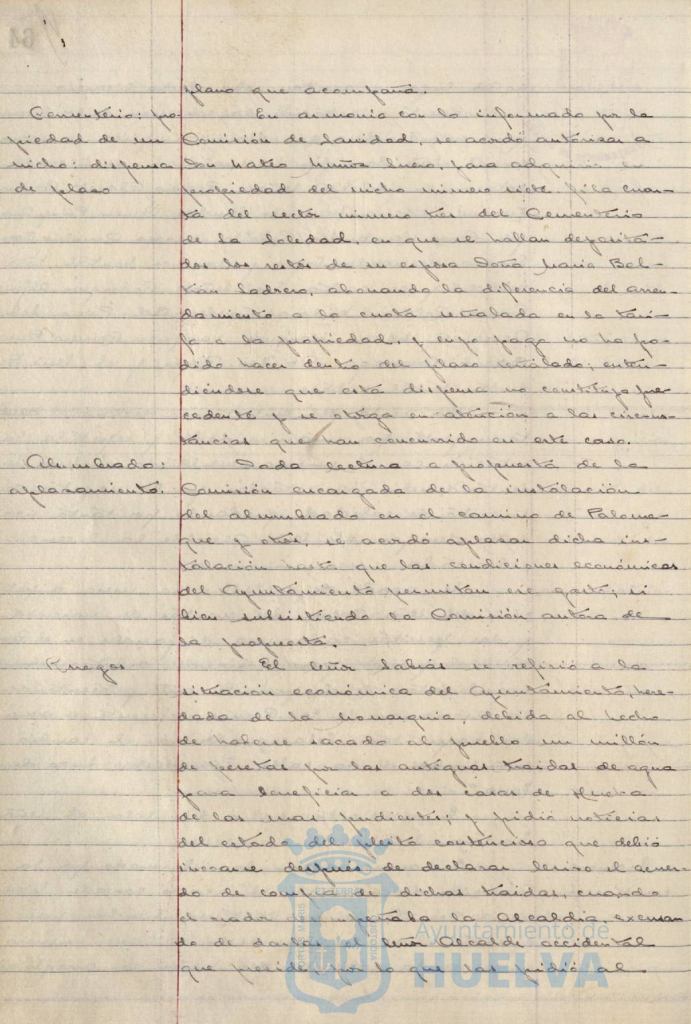 plano que acompaña.
Cementerio: pro-
piedad de un
nicho: dispensa
de plazo
En armonía con lo informado por la
Comisión de Sanidad, se acordó autorizar a
Don Mateo Muñoz Suero, para adquirir en
propiedad del nicho número siete fila cuar-
ta del sector número tres del Cementerio
de la Soledad, en que se hallan deposita-
dos los restos de su esposa Doña María Bel-
trán Ladrero, abonando la diferencia del arren-
damiento a la cuota señalada en la tari-
fa a la propiedad, y cuyo pago no ha po-
dido hacer dentro del plazo señalado; enten-
diéndose que esta dispensa no constituye pre-
cedente y se otorga en atención a las circuns-
tancias que han concurrido en este caso.
Alumbrado:
aplazamiento.
Dada lectura a propuesta de la
Comisión encargada de la instalación
del alumbrado en el camino de Palome-
que y otros, se acordó aplazar dicha ins-
talación hasta que las condiciones económicas
del Ayuntamiento permitan ese gasto; si
bien subsistiendo la Comisión autora de
la propuesta.
Ruegos
El Señor Sabrás se refirió a la
situación económica del Ayuntamiento, here-
dada de la monarquía, debida al hecho
de haberse sacado al pueblo un millón
de pesetas por las antiguas traidas de agua
para beneficiar a dos casas de Huelva
de las mas pudientes; y pidió noticias
del estado del pleito contencioso que debió
incoarse después de declarar lesivo el acuer-
do de compra de dichas traidas, cuando
el orador desempeñaba la Alcaldía, excusan-
do de darlas el Señor Alcalde accidental
que preside, por lo que las pidió al
Ayuntamiento de
HUELVA